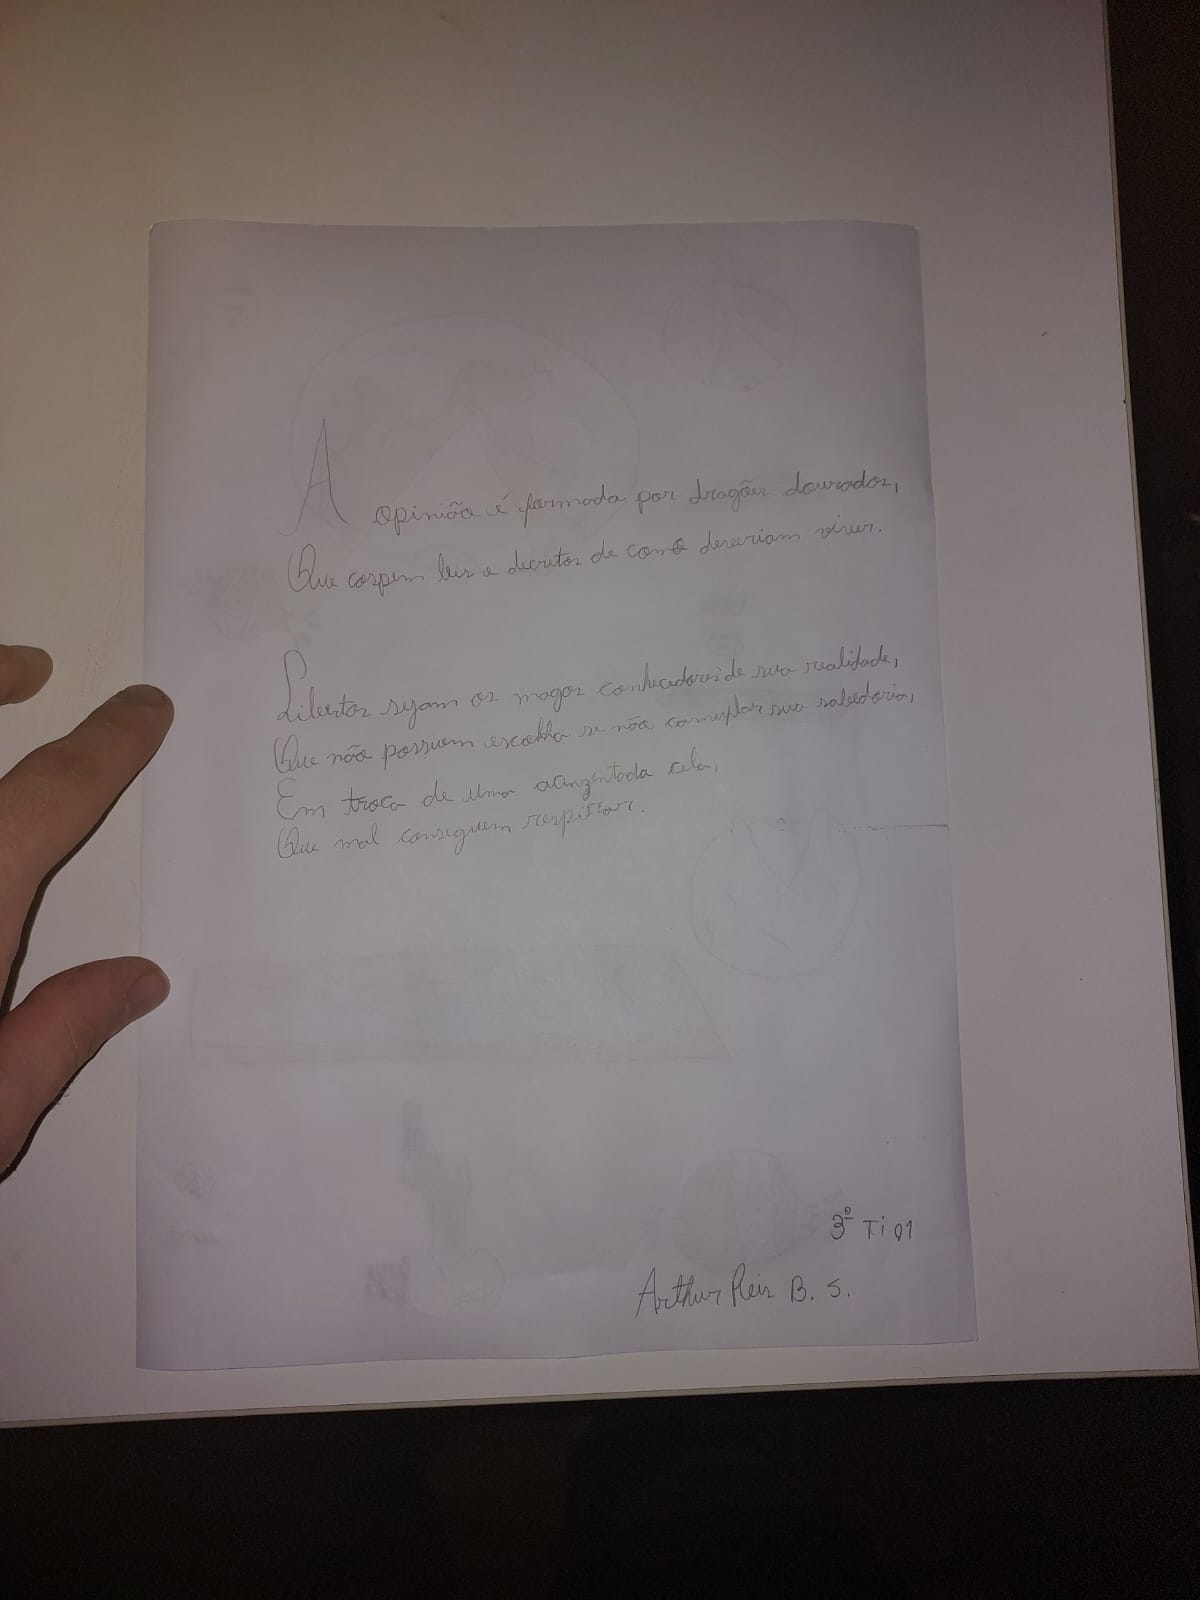 A opinião é formada por dragões dourados,
Que cospem leis e decretos de como deveriam viver.
Libertos sejam os magos conhecedores de sua realidade,
Que não possuem escolha se não corruptar sua sabedoria,
Em troca de uma acinzentada cela,
Que mal conseguem respirar.
3º Ti 01
Arthur Reis B. S.